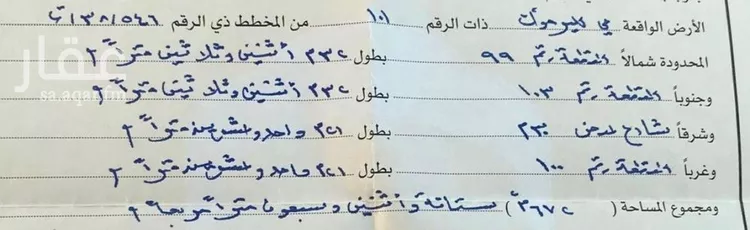 الأرض الواقعة في اليرموك ذات الرقم ١٠١ من المخطط ذي الرقم ٥٤٦ / ٣٨ / ت
المحدودة شمالاً القطعة رقم ٩٩ بطول ٣٢م أثنين وثلاثين متراً
وجنوباً القطعة رقم ١٠٣ بطول ٣٢م أثنين وثلاثين متراً
وشرقاً شارع عرض ٣٠م بطول ٢١م واحد وعشرين متراً
وغرباً القطعة رقم ١٠٠ بطول ٢١م واحد وعشرين متراً
ومجموع المساحة ( ٦٧٢م ) ستمائة وأثنين وسبعون متراً مربعاً
عقار
sa.aqar.fm